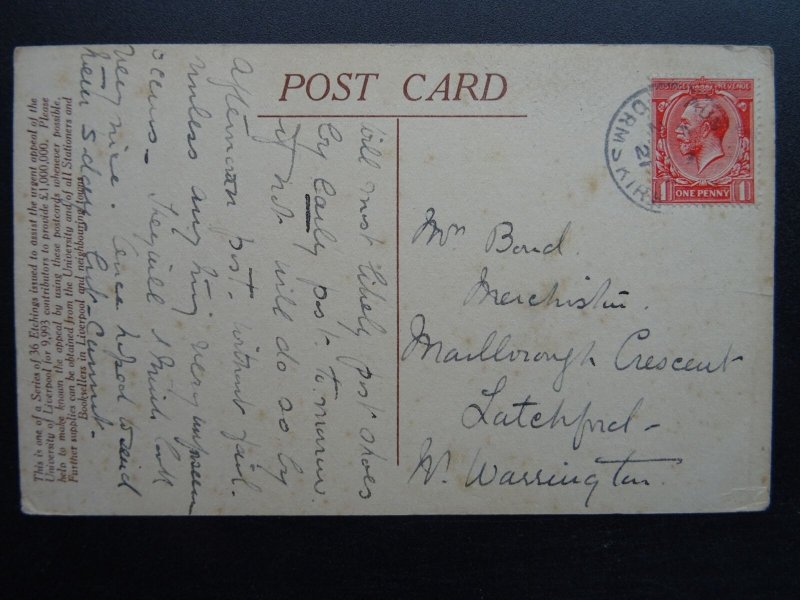 POST CARD
This is one of a Series of 36 Etchings issued to assist the urgent appeal of the
University of Liverpool for 9,993 contributors to provide £1,000,000. Please
help to make known the appeal by using these postcards whenever possible.
Further supplies can be obtained from the University and of all Stationers and
Booksellers in Liverpool and neighbouring towns
will most likely post shoes
by Early post to morrow.
if not will do so by
afternoon post. without fail.
unless anything very unforeseen
occurs -
very nice. hoped to send
hem s dawn but - cannot -
POSTAGE REVENUE
ORMSKIRK
21
1 ONE PENNY 1
Mrs Bond.
Merchiston.
Marlborough Crescent
Latchford -
Nr. Warrington.